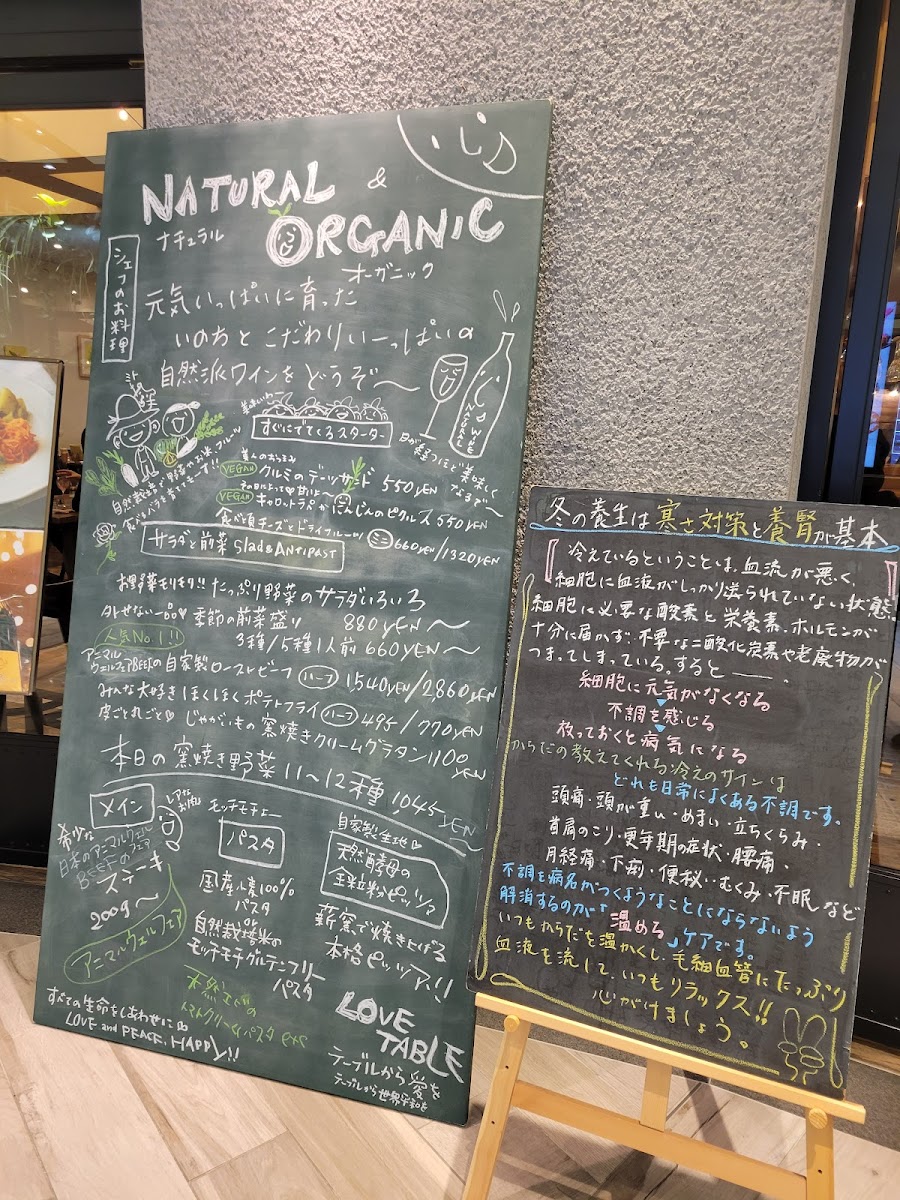 NATURAL &
ナチュラル
ORGANIC
オーガニック
シェフのお料理
元気いっぱいに育った
いのちとこだわりいーっぱいの
自然派ワインをどうぞ〜
NATURAL WINE
日が経つほど美味しく
なるデ〜
美味しいわ〜
すぐにでてくるスターター
自然栽培で野菜やお米、フルーツ
VEGAN クルミのデーツサンド 550YEN
VEGAN キャロットラペ か にんじんのピクルス 550YEN
食べ頃チーズとドライフルーツ ミニ 660YEN/1320YEN
サラダと前菜 Slad & ANTIPAST
お野菜モリモリ!! たっぷり野菜のサラダいろいろ
880YEN〜
外せない一品♡ 季節の前菜盛り
人気No.1!! 3種/5種 1人前 660YEN〜
アニマル
ウェルフェアBEEFの自家製ローストビーフ ハーフ 1540YEN/2860YEN
みんな大好きほくほくポテトフライ ハーフ 495/770YEN
皮ごと丸ごと♡ じゃがいもの窯焼きクリームグラタン 1100YEN
本日の窯焼き野菜 11〜12種 1045YEN
メイン
レアな
お肉
希少な
日本のアニマルウェル
BEEFのフェア
ステーキ
200g〜
アニマルウェルフェア
モッチモチェー
パスタ
国産小麦100%
パスタ
自然栽培米の
モッチモチグルテンフリー
パスタ
天然エビの
トマトクリームパスタ etc
自家製生地♡
天然酵母の
全粒粉ピッツァ
薪窯で焼き上げる
本格ピッツァ!!
すべての生命をしあわせに
LOVE and PEACE. HAPPY!!
LOVE
TABLE
テーブルから愛を
テーブルから世界平和を
冬の養生は寒さ対策と養腎が基本
冷えているということは、血流が悪く、
細胞に血液がしっかり送られていない状態。
細胞に必要な酸素と栄養素、ホルモンが
十分に届かず、不要な二酸化炭素や老廃物が
つまってしまっている。すると――、
細胞に元気がなくなる
不調を感じる
放っておくと病気になる
からだの教えてくれる冷えのサインは
どれも日常によくある不調です。
頭痛・頭が重い・めまい・立ちくらみ・
首肩のこり・更年期の症状・腰痛・
月経痛・下痢・便秘・むくみ・不眠など
不調を病名がつくようなことにならないよう
解消するのが「温める」ケアです。
いつもからだを温かくし、毛細血管にたっぷり
血液を流して、いつもリラックス!!
心がけましょう。